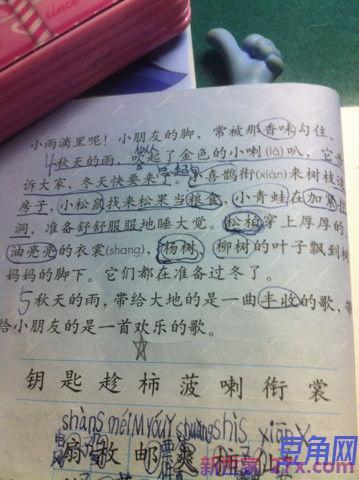 小雨滴里呢！小朋友的脚，常被那香味勾住。
4秋天的雨，吹起了金色的小喇(lǎ)叭，它告
诉大家，冬天快要来了。小喜鹊衔(xián)来树枝造
房子，小松鼠找来松果当粮食，小青蛙在加紧挖
洞，准备舒舒服服地睡大觉。松柏穿上厚厚的、
油亮亮的衣裳(shang)，杨树、柳树的叶子飘到树
妈妈的脚下。它们都在准备过冬了。
5秋天的雨，带给大地的是一曲丰收的歌，带
给小朋友的是一首欢乐的歌。
钥匙趁柿菠喇衔裳
扇枚邮爽
豆角网